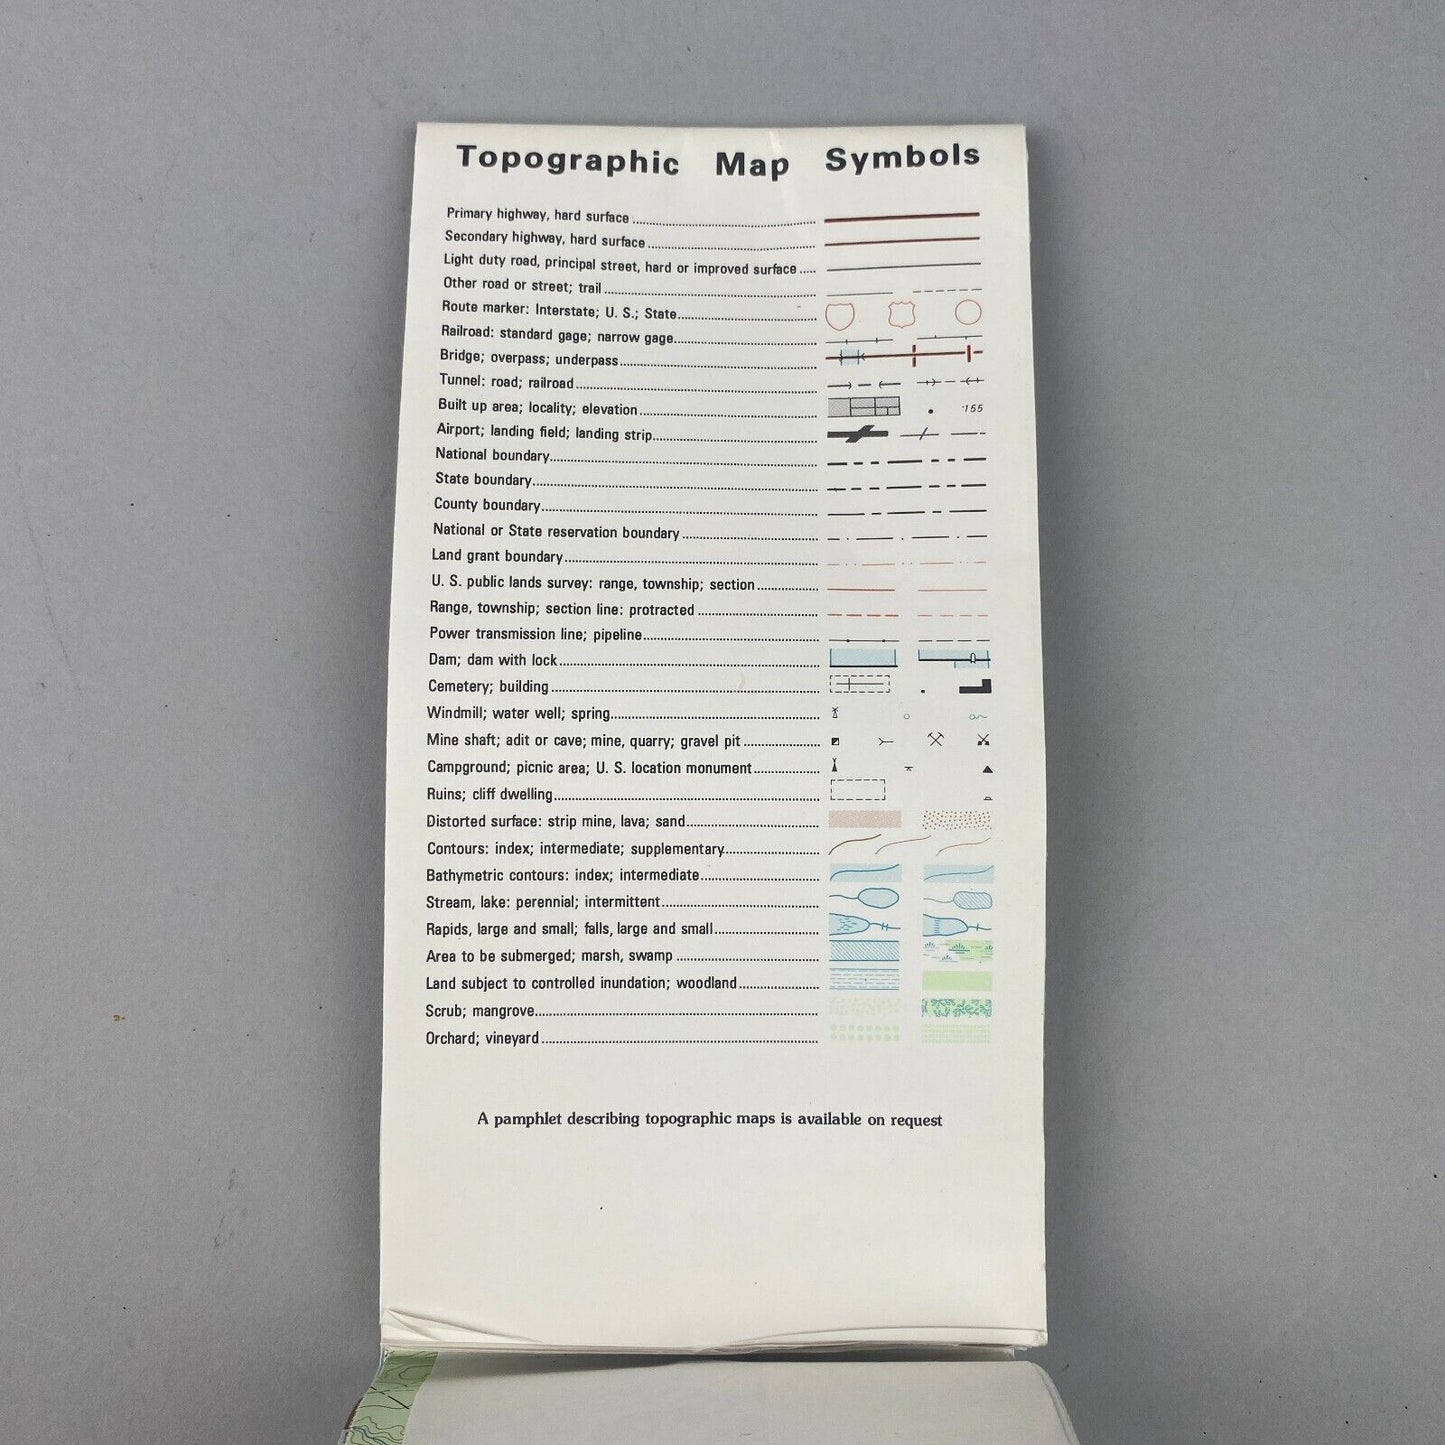 Topographic Map Symbols
Primary highway, hard surface
Secondary highway, hard surface
Light duty road, principal street, hard or improved surface
Other road or street; trail
Route marker: Interstate; U. S.; State
Railroad: standard gage; narrow gage
Bridge; overpass; underpass
Tunnel: road; railroad
Built up area; locality; elevation 155
Airport; landing field; landing strip
National boundary
State boundary
County boundary
National or State reservation boundary
Land grant boundary
U. S. public lands survey: range, township; section
Range, township; section line: protracted
Power transmission line; pipeline
Dam; dam with lock
Cemetery; building
Windmill; water well; spring
Mine shaft; adit or cave; mine, quarry; gravel pit
Campground; picnic area; U. S. location monument
Ruins; cliff dwelling
Distorted surface: strip mine, lava; sand
Contours: index; intermediate; supplementary
Bathymetric contours: index; intermediate
Stream, lake: perennial; intermittent
Rapids, large and small; falls, large and small
Area to be submerged; marsh, swamp
Land subject to controlled inundation; woodland
Scrub; mangrove
Orchard; vineyard
A pamphlet describing topographic maps is available on request